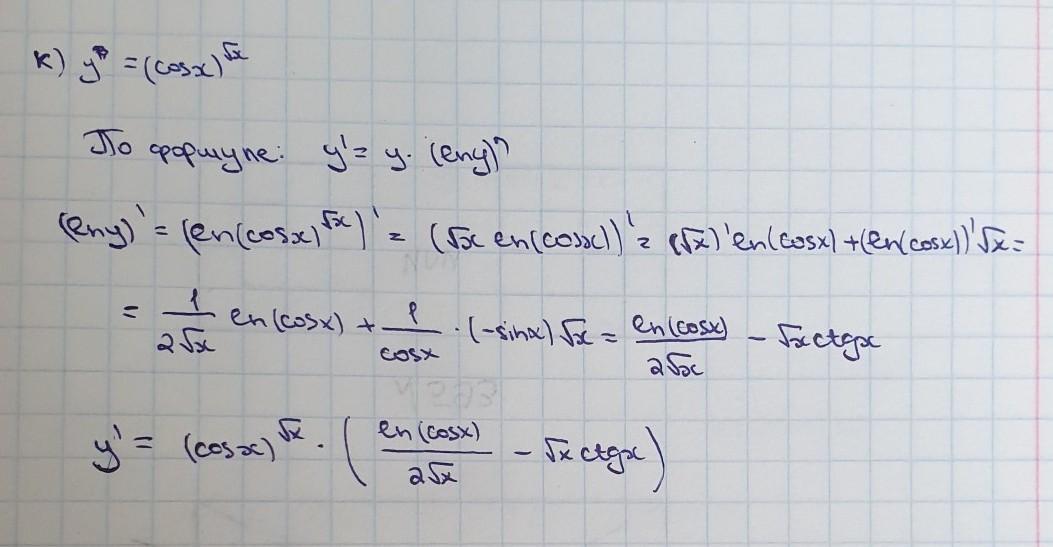 к) y = (cosx)^√x
По формуле: y' = y · (lny)'
(lny)' = (ln(cosx)^√x)' = (√x ln(cosx))' = (√x)' ln(cosx) + (ln(cosx))' √x =
= 1/(2√x) ln(cosx) + 1/cosx · (-sinx) √x = ln(cosx)/(2√x) - √x ctgx
y' = (cosx)^√x · (ln(cosx)/(2√x) - √x ctgx)